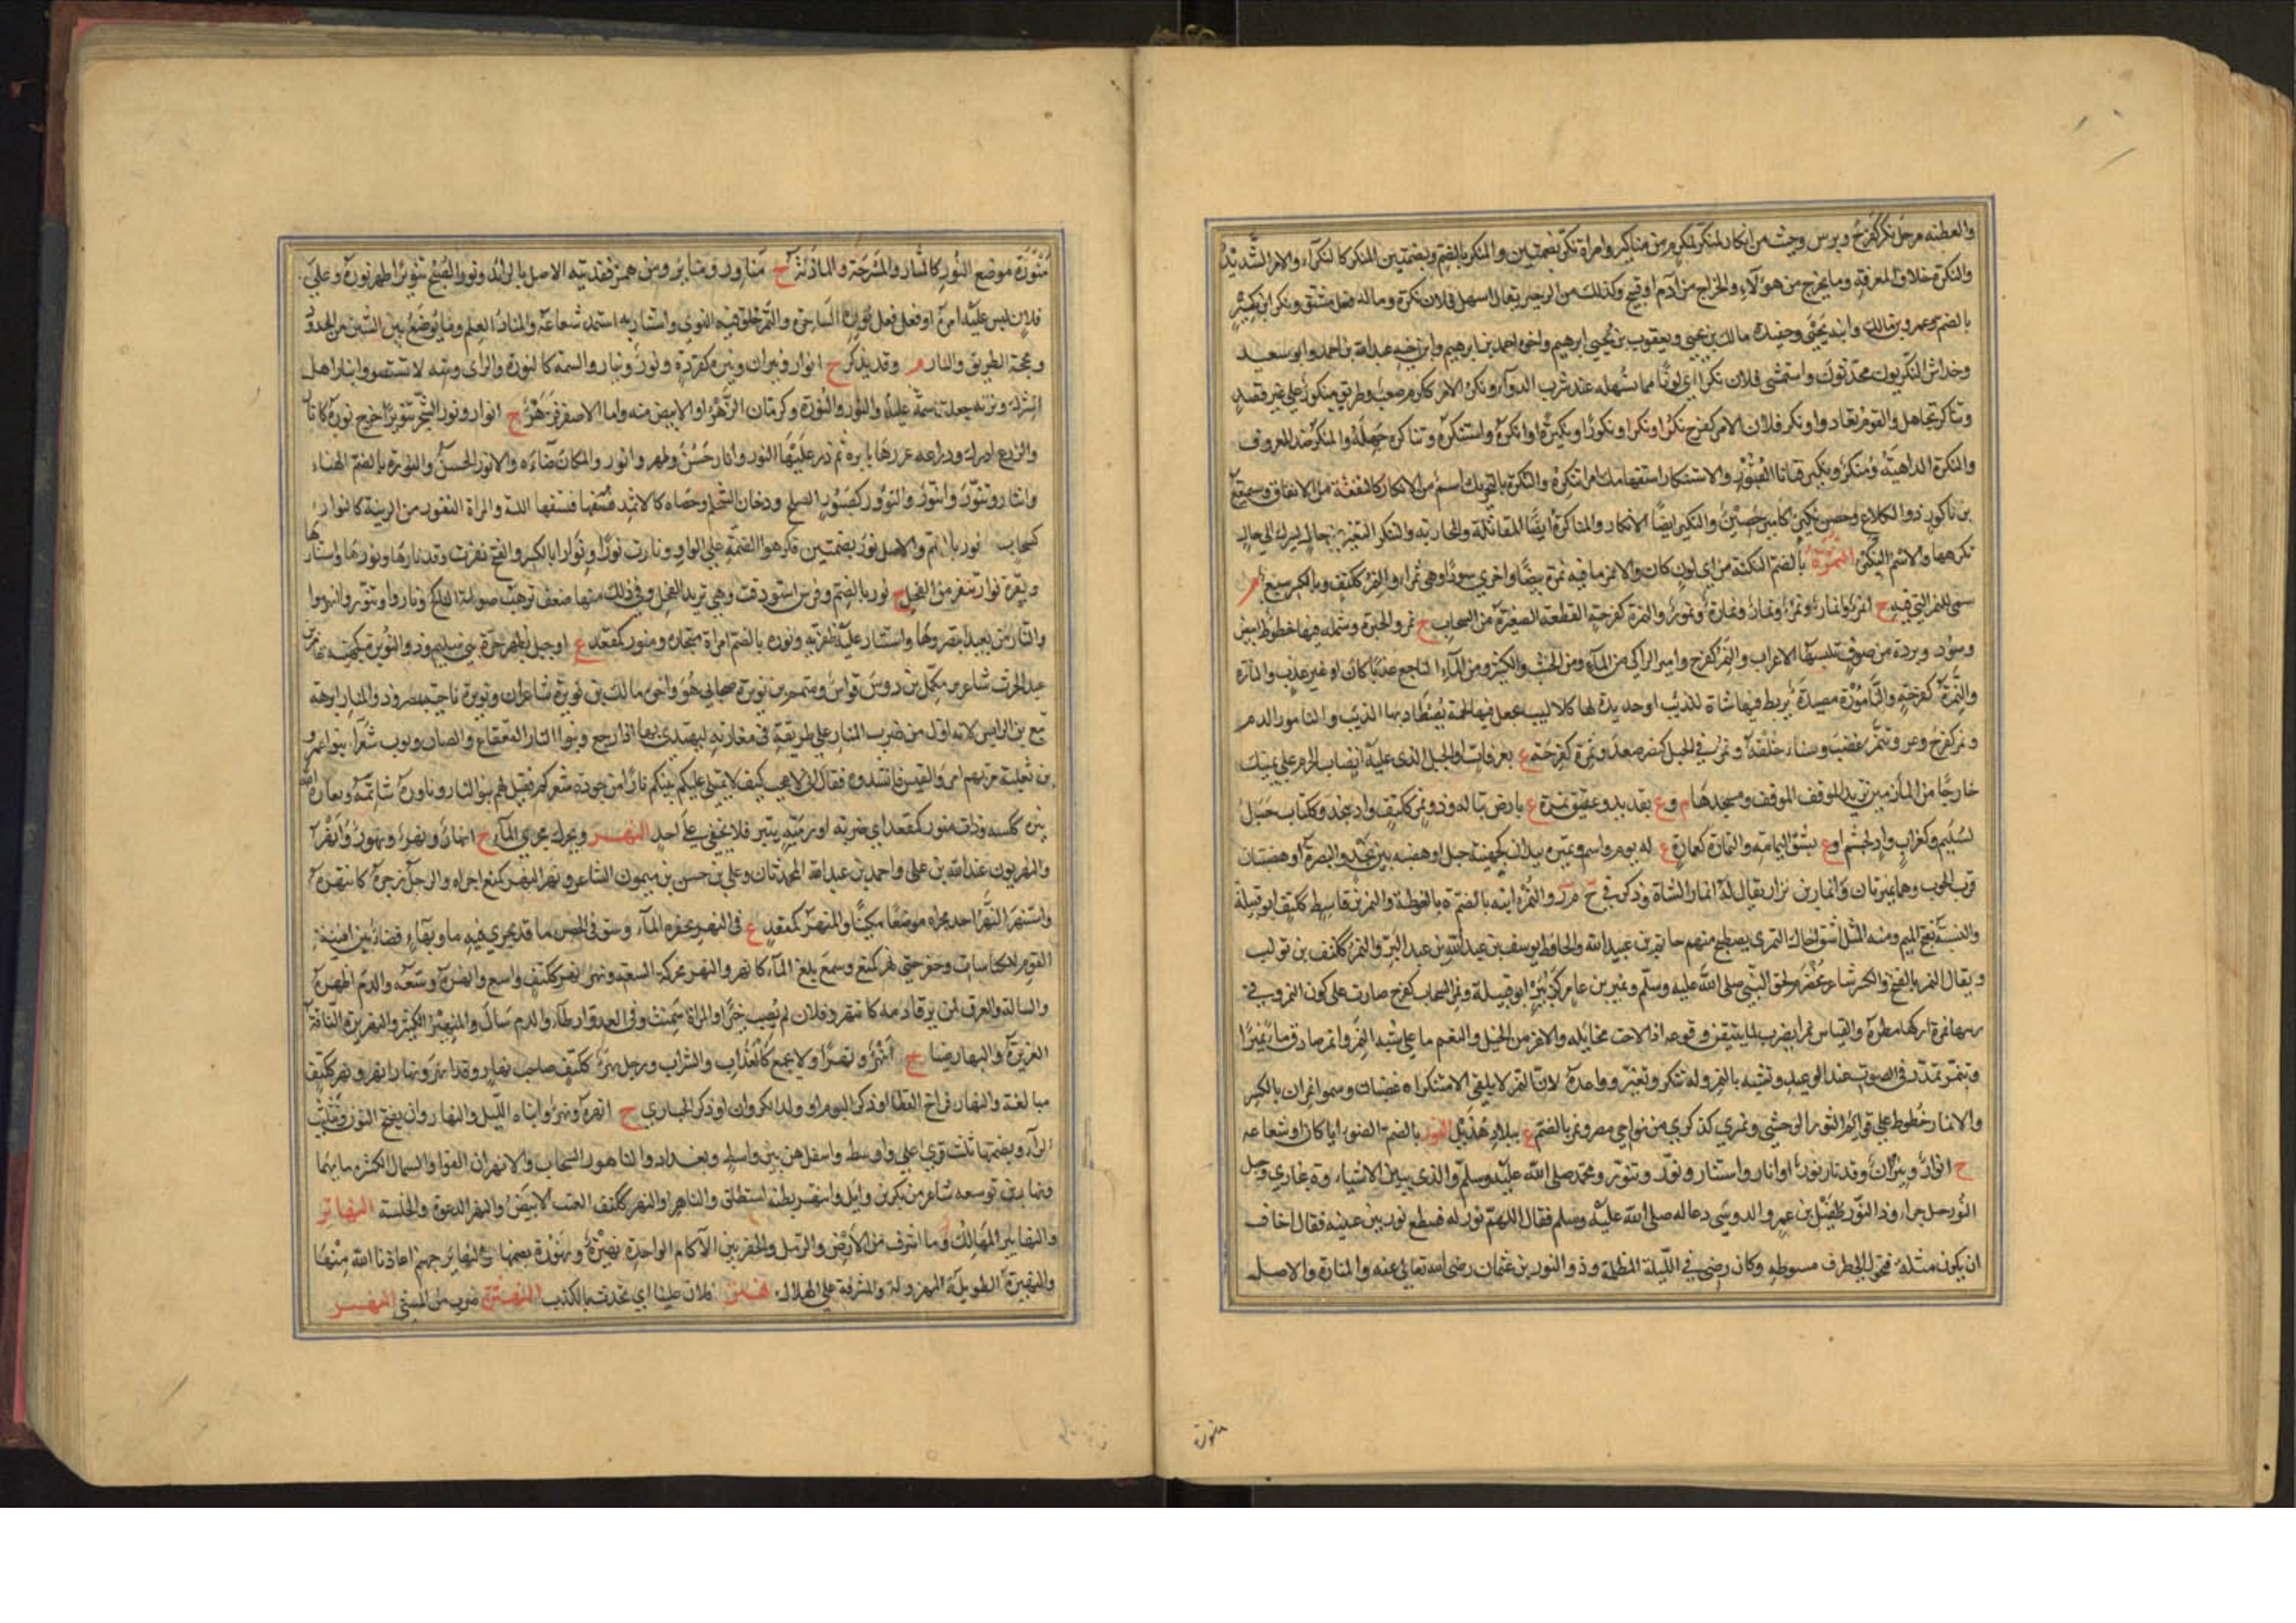 والفطنة رجل نكر كفرح وندس وجنب من انكار ومنكر كمكرم من مناكير وامراة نكر بضمتين والمنكر بالضم وبضمتين المنكر كالنكرآء والامر الشديد
والنكرة خلاف المعرفة وما يخرج من الحولآء والخراج من دم او قيح وكذلك من الزحير يقال اسهل فلان نكرة وماله فعل مشتق ونكر ابن نكيز
بالضم وعمرو بن مالك وابنه يحيى وحفيده مالك بن يحيى ويعقوب بن يحيى ابرهيم واخوه احمد بن ابرهيم وابن اخيه عبد الله بن احمد وابو سعيد
وخداش النكريون محدثون واستمشى فلان نكرآء اي لونا مما يسهله عند شرب الدوآء ونكر الامر ككرم صعب وطريق ينكور على غير قصد
وتناكر تجاهل والقوم تعادوا ونكر فلان الامر كفرح نكرا ونكرا ونكورا ونكيرا وانكره واستنكره وتناكره جهله والمنكر ضد المعروف
والنكرة الداهية ومنكر ونكير فتانا القبور والاستنكار استفهامك امرا تنكره والنكرة بالتحريك اسم من الانكار كالنفقة من الانفاق وسميفع
بن ناكور ذو الكلاع وحصن نكير كامير حصين والنكير ايضا الانكار والمناكرة ايضا المقاتلة والمحاربة والتنكر التغير من حال تسرك الى حال
تكرهها والاسم النكير النمرة بالضم النكتة من اي لون كان والانمر ما فيه نمرة بيضا واخرى سودآ وهي نمرآء والنمر ككتف وبالكسر سبع م
سمي للنمر التي فيه ج انمر وانمار ونمر ونمار ونمارة ونمورة والنمرة كفرحة القطعة الصغيرة من السحاب ج نمر والحبرة وشملة فيها خطوط بيض
وسود وبردة من صوف تلبسها الاعراب والنمر كفرح وامير الزاكي من المآء ومن الحسب والكثير ومن المآء الناجع عذبا كان او غير عذب والنامرة
والنمرة كفرحة والنامورة مصيدة يربط فيها شاة للذئب او حديدة لها كلاليب يجعل فيها لحمة يصطاد بها الذئب والنامور الدم
ونمر كفرح ونمر وتنمر غضب وسآء خلقه ونمر في الجبل كنصر صعد ونمرة كفرحة ع بعرفات او الجبل الذي عليه انصاب الحرم على يمينك
خارجا من المأزمين تريد الموقف ومسجدها م وع بقديد وعقيق نمرة ع بارض تبالة وذو نمر ككتف واد بنجد وككتاب جبل
لسليم وكغراب واد لجشم او ع بشق اليمامة والنمارة كعمارة ع له يوم واسم ونميرة بيدان كجهينة جبل او هضبة بين نجد والبصرة او هضبتان
قرب الحوب وهما نميرتان وانمار بن نزار يقال له انمار الشاة وذكر في ح م ر والنمرانية بالضم ة بالغوطة والنمر بن قاسط ككتف ابو قبيلة
والنسبة بفتح الميم ومنه المثل اسق اخاك النمري يصطبح منهم حاتم بن عبيد الله والحافظ يوسف بن عبد الله بن عبد البر والنمر ككتف بن تولب
ويقال النمر بالفتح والكسر شاعر مخضرم لحق النبي صلى الله عليه وسلم ونمير بن عامر كزبير ابو قبيلة ونمر السحاب كفرح صار على لون النمر وفي
ارنيها نمرة اركها مطرة والقياس نمرا يضرب لما يتيقن وقوعه اذا لاحت مخائيله والانمر من الخيل والنعم ما على شبه النمر وانمر صادف مآء نميرا
وتنمر تمدد في الصوت عند الوعيد وتشبه بالنمر وله تنكر وتغير وواعده لان النمر لا يلقى الا متنكرا غضبان وسموا نمران بالكسر
والانمار خطوط على قوائم الثور الوحشي ونمرى كذكرى ة من نواحي مصر ونمر بالضم ع ببلاد هذيل النور بالضم الضوء ايا كان او شعاعه
ج انوار ونيران وقد نار نورا وانار واستنار ونور وتنور ومحمد صلى الله عليه وسلم والذي يبين الاشياء وة ببخارى وجبل
النور جبل حراء وذو النور طفيل بن عمرو الدوسي دعا له صلى الله عليه وسلم فقال اللهم نور له فسطع نور بين عينيه فقال اخاف
ان يكون مثلة فتحول الى طرف سوطه وكان يضيء في الليلة المظلمة وذو النورين عثمان رضي الله تعالى عنه والمنارة والاصل
منورة
منورة موضع النور كالمنار والمسرجة والمأذنة ج مناور ومنائر ومن همز فقد شبه الاصل بالزائد ونور الصبح تنويرا ظهر نوره وعلى
فلان لبس عليه امره او فعل فعل نورة الساحرة والتمر خلق فيه النوى واستنار به استمد شعاعه والمنار العلم وما يوضع بين الشيئين من الحدود
ومحجة الطريق والنار م وقد يذكر ج انوار ونيران ونيرة كقردة ونور ونيار والسمة كالنورة والراي ومنه لا تستضيؤوا بنار اهل
الشرك ونرته جعلت عليه سمة والنور والنورة وكرمان الزهر او الابيض منه واما الاصفر فزهر ج انوار ونور الشجر تنويرا اخرج نوره كانار
والزرع ادرك وذراعه غرزها بابرة ثم ذر عليها النؤور وانار حسن وظهر وانور والمكان اضاءه والانور الحسن والنورة بالضم الهناء
وانتار وتنور وانتور والنؤور كصبور النيلج ودخان الشحم وحصاة كالاثمد تدق فتسفها اللثة والمراة النفور من الريبة كالنوار
كسحاب ج نور بالضم والاصل نور بضمتين فكرهوا الضمة على الواو ونارت نورا ونوارا بالكسر والفتح نفرت وقد نارها ونورها واستنارها
وبقرة نوار تنفر من الفحل ج نور بالضم وفرس استودقت وهي تريد الفحل وفي ذلك منها ضعف ترهب صولة الناكح وناروا وتنوروا انهزموا
والنار من بعيد تبصروها واستنار عليه ظفر به ونورة بالضم امراة سحارة ومنور كمقعد ع او جبل بظهر حرة بني سليم وذو النويرة كجهينة عامر بن
عبد الحرث شاعر ومكمل بن دوس قواس ومتمم بن نويرة صحابي هو واخوه مالك بن نويرة شاعران ونويرة ناحية بمصر وذو المنار ابرهة
تبع بن الرايش لانه اول من ضرب المنار على طريقه في مغازيه ليهتدي بها اذا رجع وبنو النار القعقاع والضنان وثوب شعرآء بنو عمرو
بن ثعلبة مر بهم امرؤ القيس فانشدوه فقال اني لاعجب كيف لا تمتلئ عليكم بيتكم نارا من جودة شعركم فقيل لهم بنو النار وناوره شاتمه وبغاه الله
نيرة ككيسة وذات منور كمقعد اي ضربة او رمية تنير فلا تخفى على احد النهر ويحرك مجرى المآء ج انهار ونهر ونهور وانهر
والنهريون عبد الله بن علي واحمد بن عبد الله المحدثان وعلي بن حسن بن ميمون الشاعر ونهر النهر كمنع اجراه والرجل زجره كانتهره
واستنهر النهر اخذ لمجراه موضعا مكينا والمنهر كمقعد ع في النهر يحفره المآء وشق في الحصن نافذ يجري فيه مآء وبهآء فضآء بين افنية
القوم للكناسات وحفر حتى نهر كمنع وسمع بلغ المآء كانهر والنهر محركة السعة ونهر نهر ككتف واسع وانهره وسعه والدم اظهره
واساله والعرق لم يرقأ دمه كانتهر وفلان لم يصب خيرا والمراة سمنت وفي العدو ابطآء والدم سال والمنهر الكثير والنهيرة الناقة
الغزيرة والنهار ضيآء ج انهر ونهر او لا يجمع كالعذاب والسراب ورجل نهر ككتف صاحب نهار وقد انهر ونهار انهر ونهر ككتف
مبالغة والنهار فرخ القطا او ذكر البوم او ولد الكروان او ذكر الحبارى ج انهرة ونهر وابناه الليل والنهار وان بفتح النون وتثليث
الرآء وبضمها ثلث قرى اعلى واوسط واسفل هن بين واسط وبغداد والناهور السحاب والانهران العوا والسماك لكثرة مائهما
ونهار بن توسعة شاعر من بكر بن وايل وانتهر بطنه استطلق والناهر والنهر ككتف العنب الابيض والنهر الدعوة والخلسة النهابر
والنهابير المهالك وما اشرف من الارض والرمل والحفر بين الآكام الواحدة نهبرة ونهبورة بضمها والنهابر جهنم اعاذنا الله منها
والنهبرة الطويلة المهزولة والمشرفة على الهلاك نهتر فلان علينا اي تحدث بالكذب النهترة ضرب من المشي النهسر